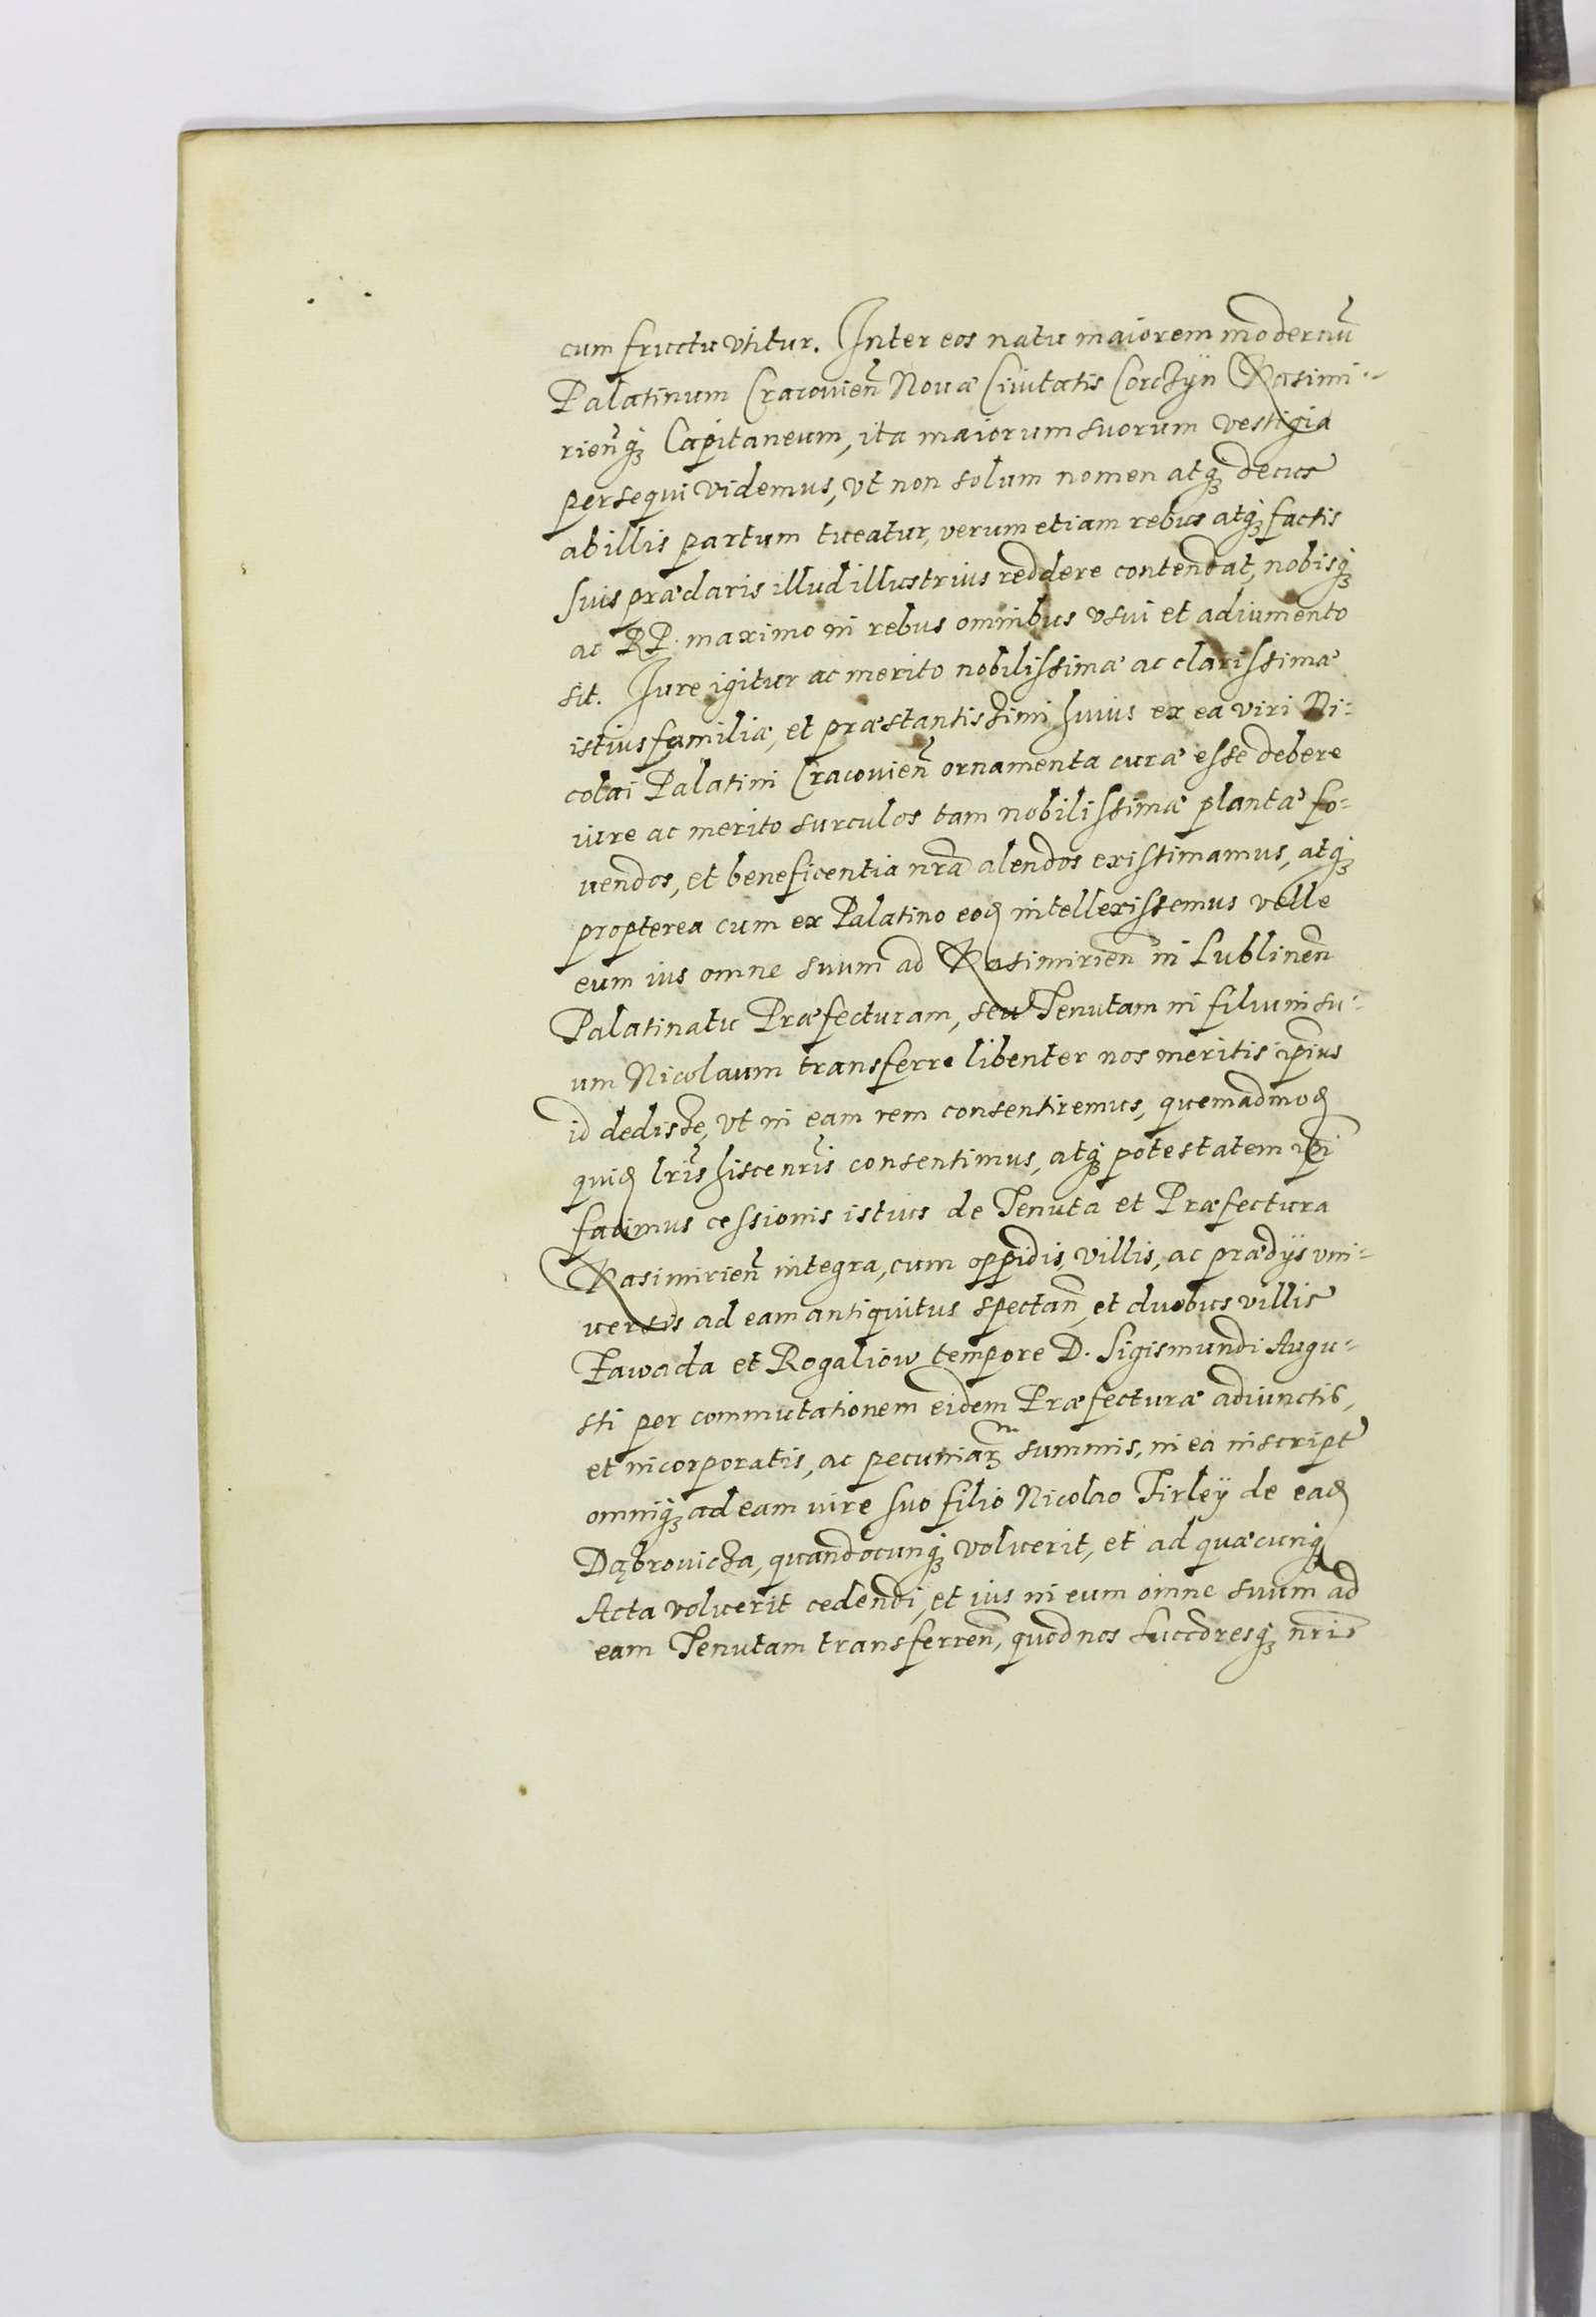 cum fructu vtitur. Inter eos natu maiorem modernũ
Palatinum Cracovien̄ Nouæ Ciuitatis Corczÿn Kasimi-
rien̄q̃ Capitaneum, ita maiorum suorum vestigia
persequi videmus, vt non solum nomen atq̃ decus
ab illis partum tueatur, verum etiam rebus atq̃ factis
suis præclaris illud illustrius reddere contendat, nobisq̃
ac RP. maximo in rebus omnibus vsui et adiumento
sit. Iure igitur ac merito nobilissimæ ac clarissimæ
istius familiæ, et præstantissimi huius ex ea viri Ni-
colai Palatini Cracovien̄ ornamenta curæ esse debere
iure ac merito surculos tam nobilissimæ plantæ fo-
uendos, et beneficentia nr̃a alendos existimamus, atq̃
propterea cum ex Palatino eod intellexissemus velle
eum ius omne suum ad Kasimirien̄ in Lublinen̄
Palatinatu Præfecturam, seu Tenutam in filium su-
um Nicolaum transferre libenter nos meritis ip̃ius
id dedisse, vt in eam rem consentiremus, quemadmod
quid lr̃is hisce nr̃is consentimus, atq̃ potestatem ip̃i
facimus cessionis istius de Tenuta et Præfectura
Kasimirien̄ integra, cum oppidis, villis, ac prædÿs vni-
uersis ad eam antiquitus spectan̄, et duobus villis
Zawada et Rogaliow tempore D. Sigismundi Augu-
sti per commutationem eidem Præfecturæ adiunctis,
et incorporatis, ac pecuniar̃m summis, in ea inscript
omniq̃ ad eam iure suo filio Nicolao Firleÿ de ead
Dąbrovicza, quandocunq̃ voluerit, et ad quæcunq̃
Acta voluerit cedendi, et ius in eum om̃ne suum ad
eam Tenutam transferren̄, quod nos Succ̃oresq̃ nr̃i